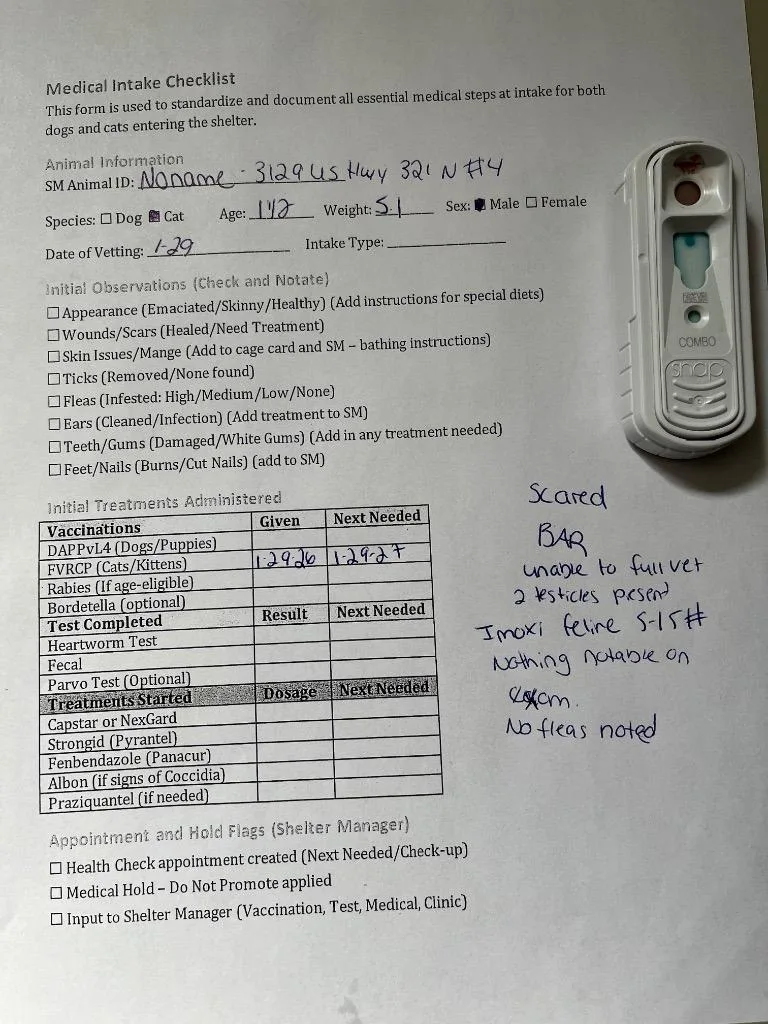 Medical Intake Checklist
This form is used to standardize and document all essential medical steps at intake for both
dogs and cats entering the shelter.
Animal Information
SM Animal ID: Noname - 3129 US Hwy 321 N #4
Species: ☐ Dog ☒ Cat Age: 1 1/2 Weight: 5.1 Sex: ☒ Male ☐ Female
Date of Vetting: 1-29 Intake Type:
Initial Observations (Check and Notate)
☐ Appearance (Emaciated/Skinny/Healthy) (Add instructions for special diets)
☐ Wounds/Scars (Healed/Need Treatment)
☐ Skin Issues/Mange (Add to cage card and SM – bathing instructions)
☐ Ticks (Removed/None found)
☐ Fleas (Infested: High/Medium/Low/None)
☐ Ears (Cleaned/Infection) (Add treatment to SM)
☐ Teeth/Gums (Damaged/White Gums) (Add in any treatment needed)
☐ Feet/Nails (Burns/Cut Nails) (add to SM)
COMBO
snap
Initial Treatments Administered
Vaccinations Given Next Needed
DAPPvL4 (Dogs/Puppies)
FVRCP (Cats/Kittens) 1-29-26 1-29-27
Rabies (If age-eligible)
Bordetella (optional)
Test Completed Result Next Needed
Heartworm Test
Fecal
Parvo Test (Optional)
Treatments Started Dosage Next Needed
Capstar or NexGard
Strongid (Pyrantel)
Fenbendazole (Panacur)
Albon (if signs of Coccidia)
Praziquantel (if needed)
Scared
BAR
unable to full vet
2 testicles present
Imoxi feline 5-15#
Nothing notable on
exam.
No fleas noted
Appointment and Hold Flags (Shelter Manager)
☐ Health Check appointment created (Next Needed/Check-up)
☐ Medical Hold – Do Not Promote applied
☐ Input to Shelter Manager (Vaccination, Test, Medical, Clinic)